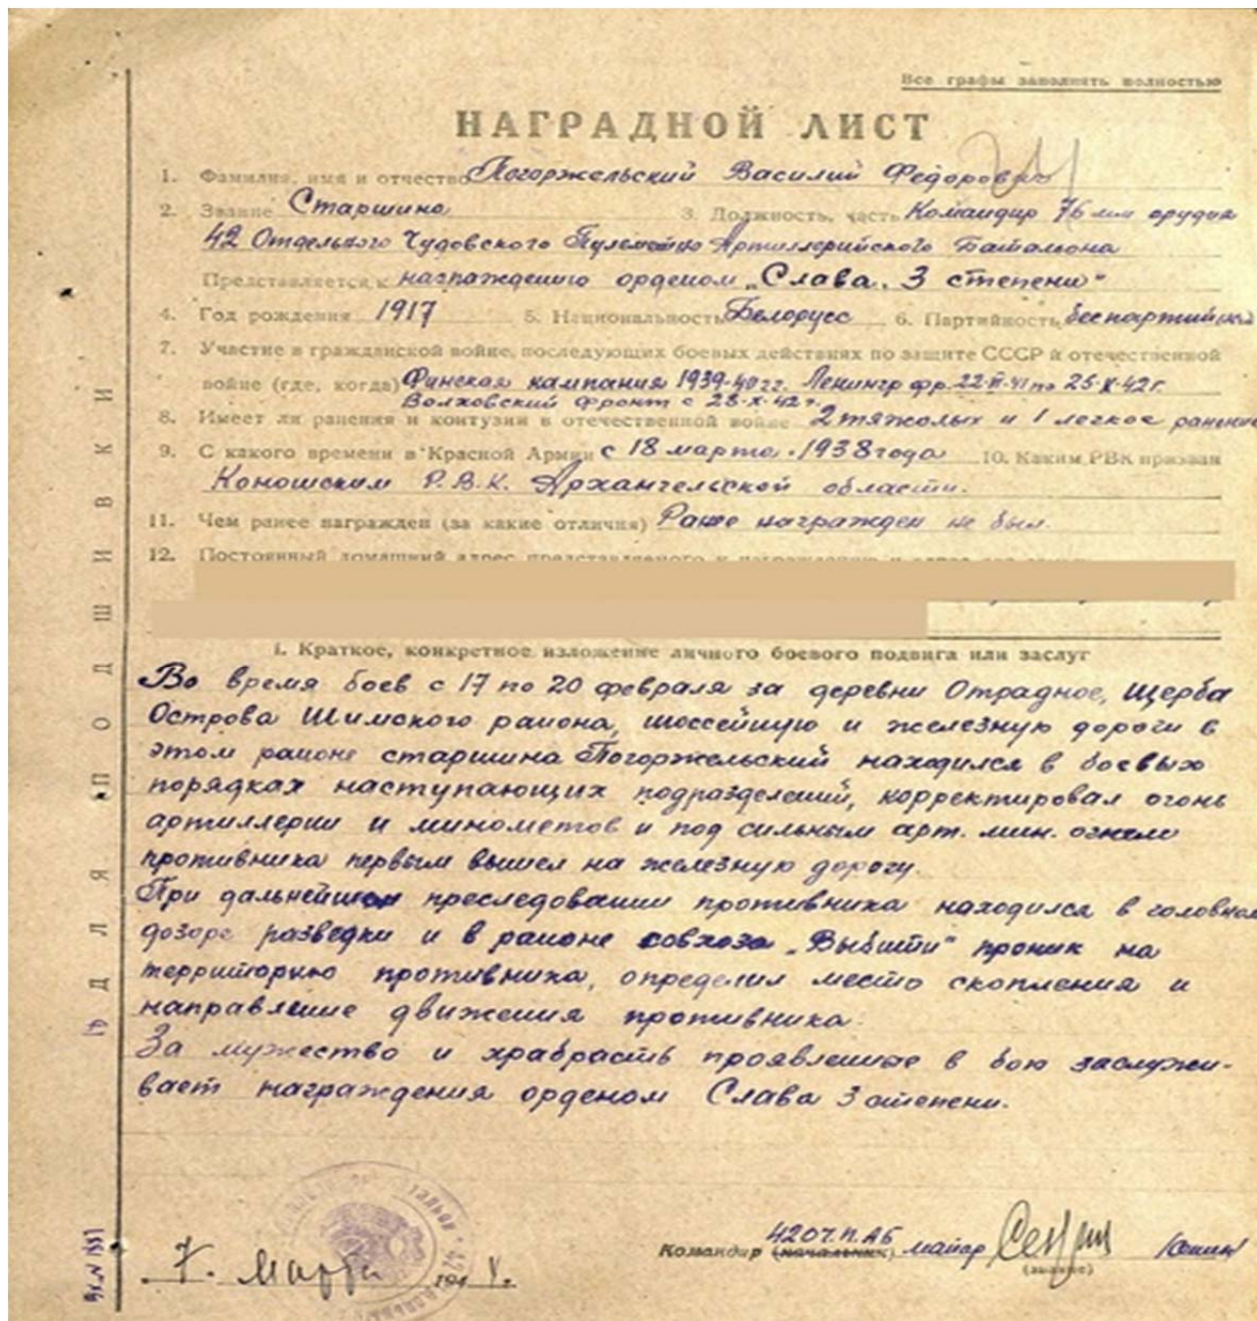 Все графы заполнять полностью
НАГРАДНОЙ ЛИСТ
1. Фамилия, имя и отчество Погоржельский Василий Федорович
2. Звание Старшина 3. Должность, часть Командир 76 мм орудия
42 Отдельного Чудовского Пулеметно Артиллерийского Батальона
Представляется к награждению орденом „Слава, 3 степени"
4. Год рождения 1917 5. Национальность Белорусс 6. Партийность беспартийный
7. Участие в гражданской войне, последующих боевых действиях по защите СССР и отечественной
войне (где, когда) Финская кампания 1939-40 гг. Ленингр фр. 22-VI-41 по 25-X-42 г.
Волховский фронт с 28-X-42 г.
8. Имеет ли ранения и контузии в отечественной войне 2 тяжолых и 1 легкое ранение
9. С какого времени в Красной Армии с 18 марта 1938 года 10. Каким РВК призван
Коношским Р.В.К. Архангельской области.
11. Чем ранее награжден (за какие отличия) Ранее награжден не был.
12. Постоянный домашний адрес представляемого к награждению и адрес его семьи
I. Краткое, конкретное изложение личного боевого подвига или заслуг
Во время боев с 17 по 20 февраля за деревни Отрадное, Щерба
Острова Шимского района, шоссейную и железную дороги в
этом районе старшина Погоржельский находился в боевых
порядках наступающих подразделений, корректировал огонь
артиллерии и минометов и под сильным арт. мин. огнем
противника первым вышел на железную дорогу.
При дальнейшем преследовании противника находился в головном
дозоре разведки и в районе совхоза „Выбити" проник на
территорию противника, определил место скопления и
направление движения противника.
За мужество и храбрасть проявленное в бою заслужи-
вает награждения орденом Слава 3 степени.
Командир (начальник) 42 ОЧПАБ майор
(звание)
7. Марта 1944 г.
ДЛЯ ПОДШИВКИ